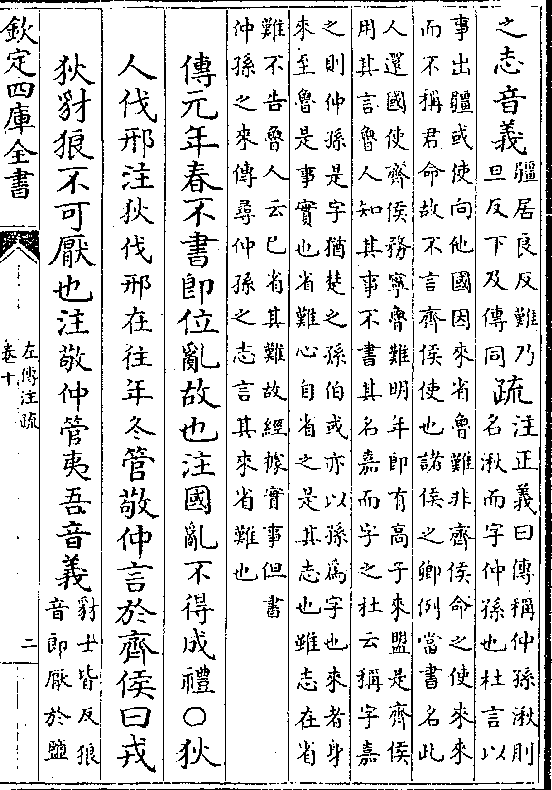 之志音義疆居良反難乃
旦反下及傳同疏注正義曰傳稱仲孫湫則
名湫而字仲孫也杜言以
事出疆或使向他國因來省魯難非齊侯命之使來來
而不稱君命故不言齊侯使也諸侯之卿例當書名此
人還國使齊侯務寧魯難明年即有高子來盟是齊侯
用其言魯人知其事不書其名嘉而字之杜云稱字嘉
之則仲孫是字猶楚之孫伯或亦以孫為字也來者身
來至魯是事實也省難心自省之是其志也雖志在省
難不告魯人云已省其難故經據實事但書
仲孫之來傳尋仲孫之志言其來省難也
傳元年春不書即位亂故也注國亂不得成禮○狄
人伐邢注狄伐邢在往年冬管敬仲言於齊侯曰戎
狄豺狼不可厭也注敬仲管夷吾音義豺士皆反狼
音即厭於鹽
欽定四庫全書
左傳注疏
卷十
二